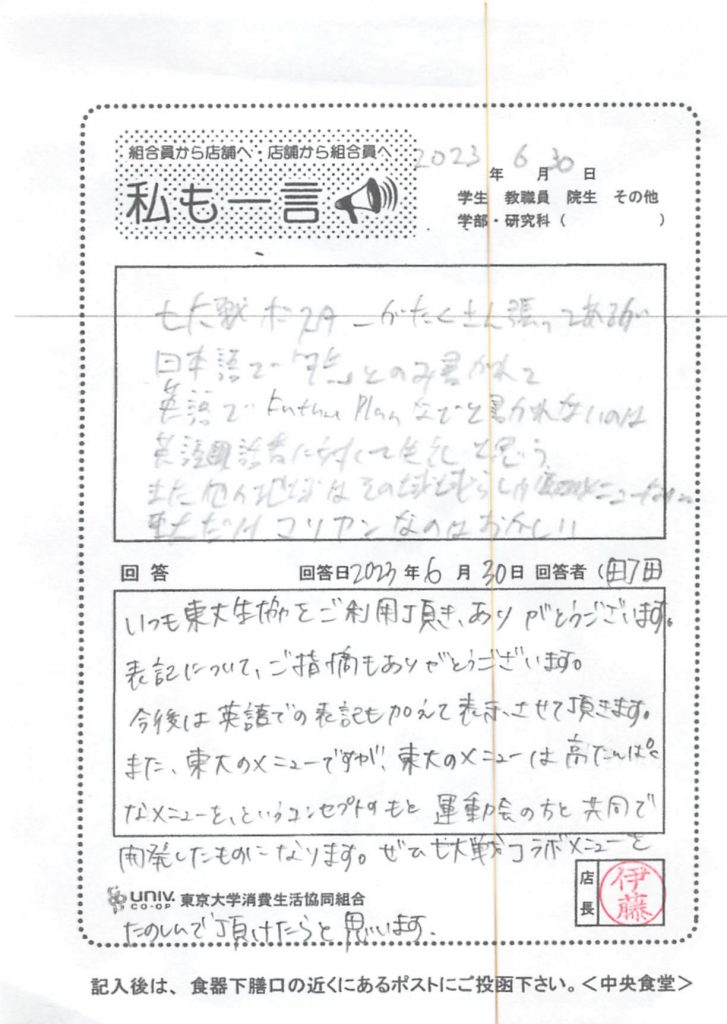 組合員から店舗へ・店舗から組合員へ
私も一言
2023年 6月 30日
学生 教職員 院生 その他
学部・研究科（ ）
七大戦ポスターがたくさん張ってあるが
日本語で「 」とのみ書かれて
英語で Future Plan などと書かれないのは
英語 話者に対して失礼と思う
また他の地域はその地域らしい メニュー
東大だけコリアンなのはおかしい
回答 回答日2023年6月30日 回答者（ 田
いつも東大生協をご利用頂き、ありがとうございます。
表記について、ご指摘もありがとうございます。
今後は英語での表記も加えて表示させて頂きます。
また、東大のメニューですが、東大のメニューは高たんぱく
なメニューを、というコンセプトのもと運動会の方と共同で
開発したものになります。ぜひ七大戦コラボメニューを
店長 伊藤
UNIV. CO-OP 東京大学消費生活協同組合
たのしんで頂けたらと思います。
記入後は、食器下膳口の近くにあるポストにご投函下さい。＜中央食堂＞